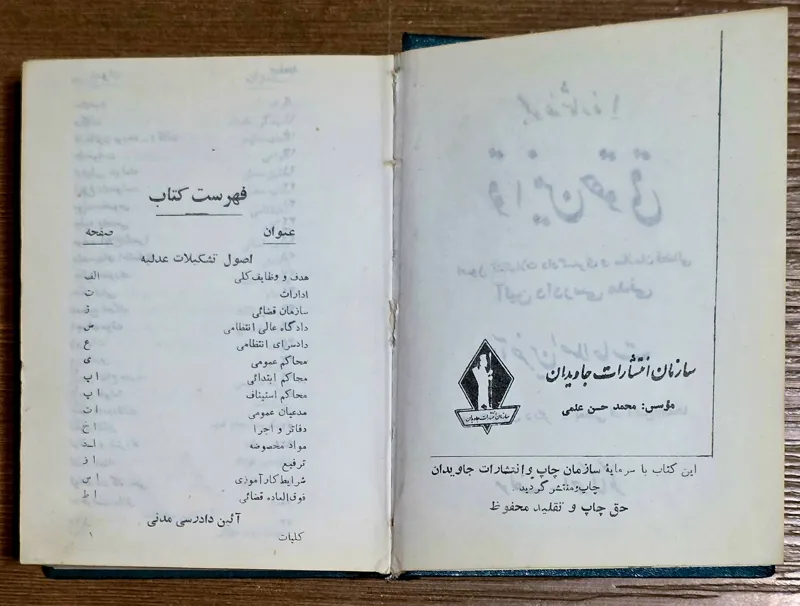 سازمان انتشارات جاویدان
مؤسس: محمد حسن علمی
سازمان انتشارات جاویدان
این کتاب با سرمایهٔ سازمان چاپ و انتشارات جاویدان
چاپ و منتشر گردید
حق چاپ و تقلید محفوظ
فهرست کتاب
عنوان صفحه
اصول تشکیلات عدلیه
هدف و وظایف کلی الف
ادارات ت
سازمان قضائی ز
دادگاه عالی انتظامی س
دادسرای انتظامی ع
محاکم عمومی ی
محاکم ابتدائی اپ
محاکم استیناف اپ
مدعیان عمومی اث
دفاتر و اجرا اخ
مواد مخصوصه اد
ترفیع از
شرایط کارآموزی اس
فوق‌العاده قضائی اط
آئین دادرسی مدنی
کلیات ۱